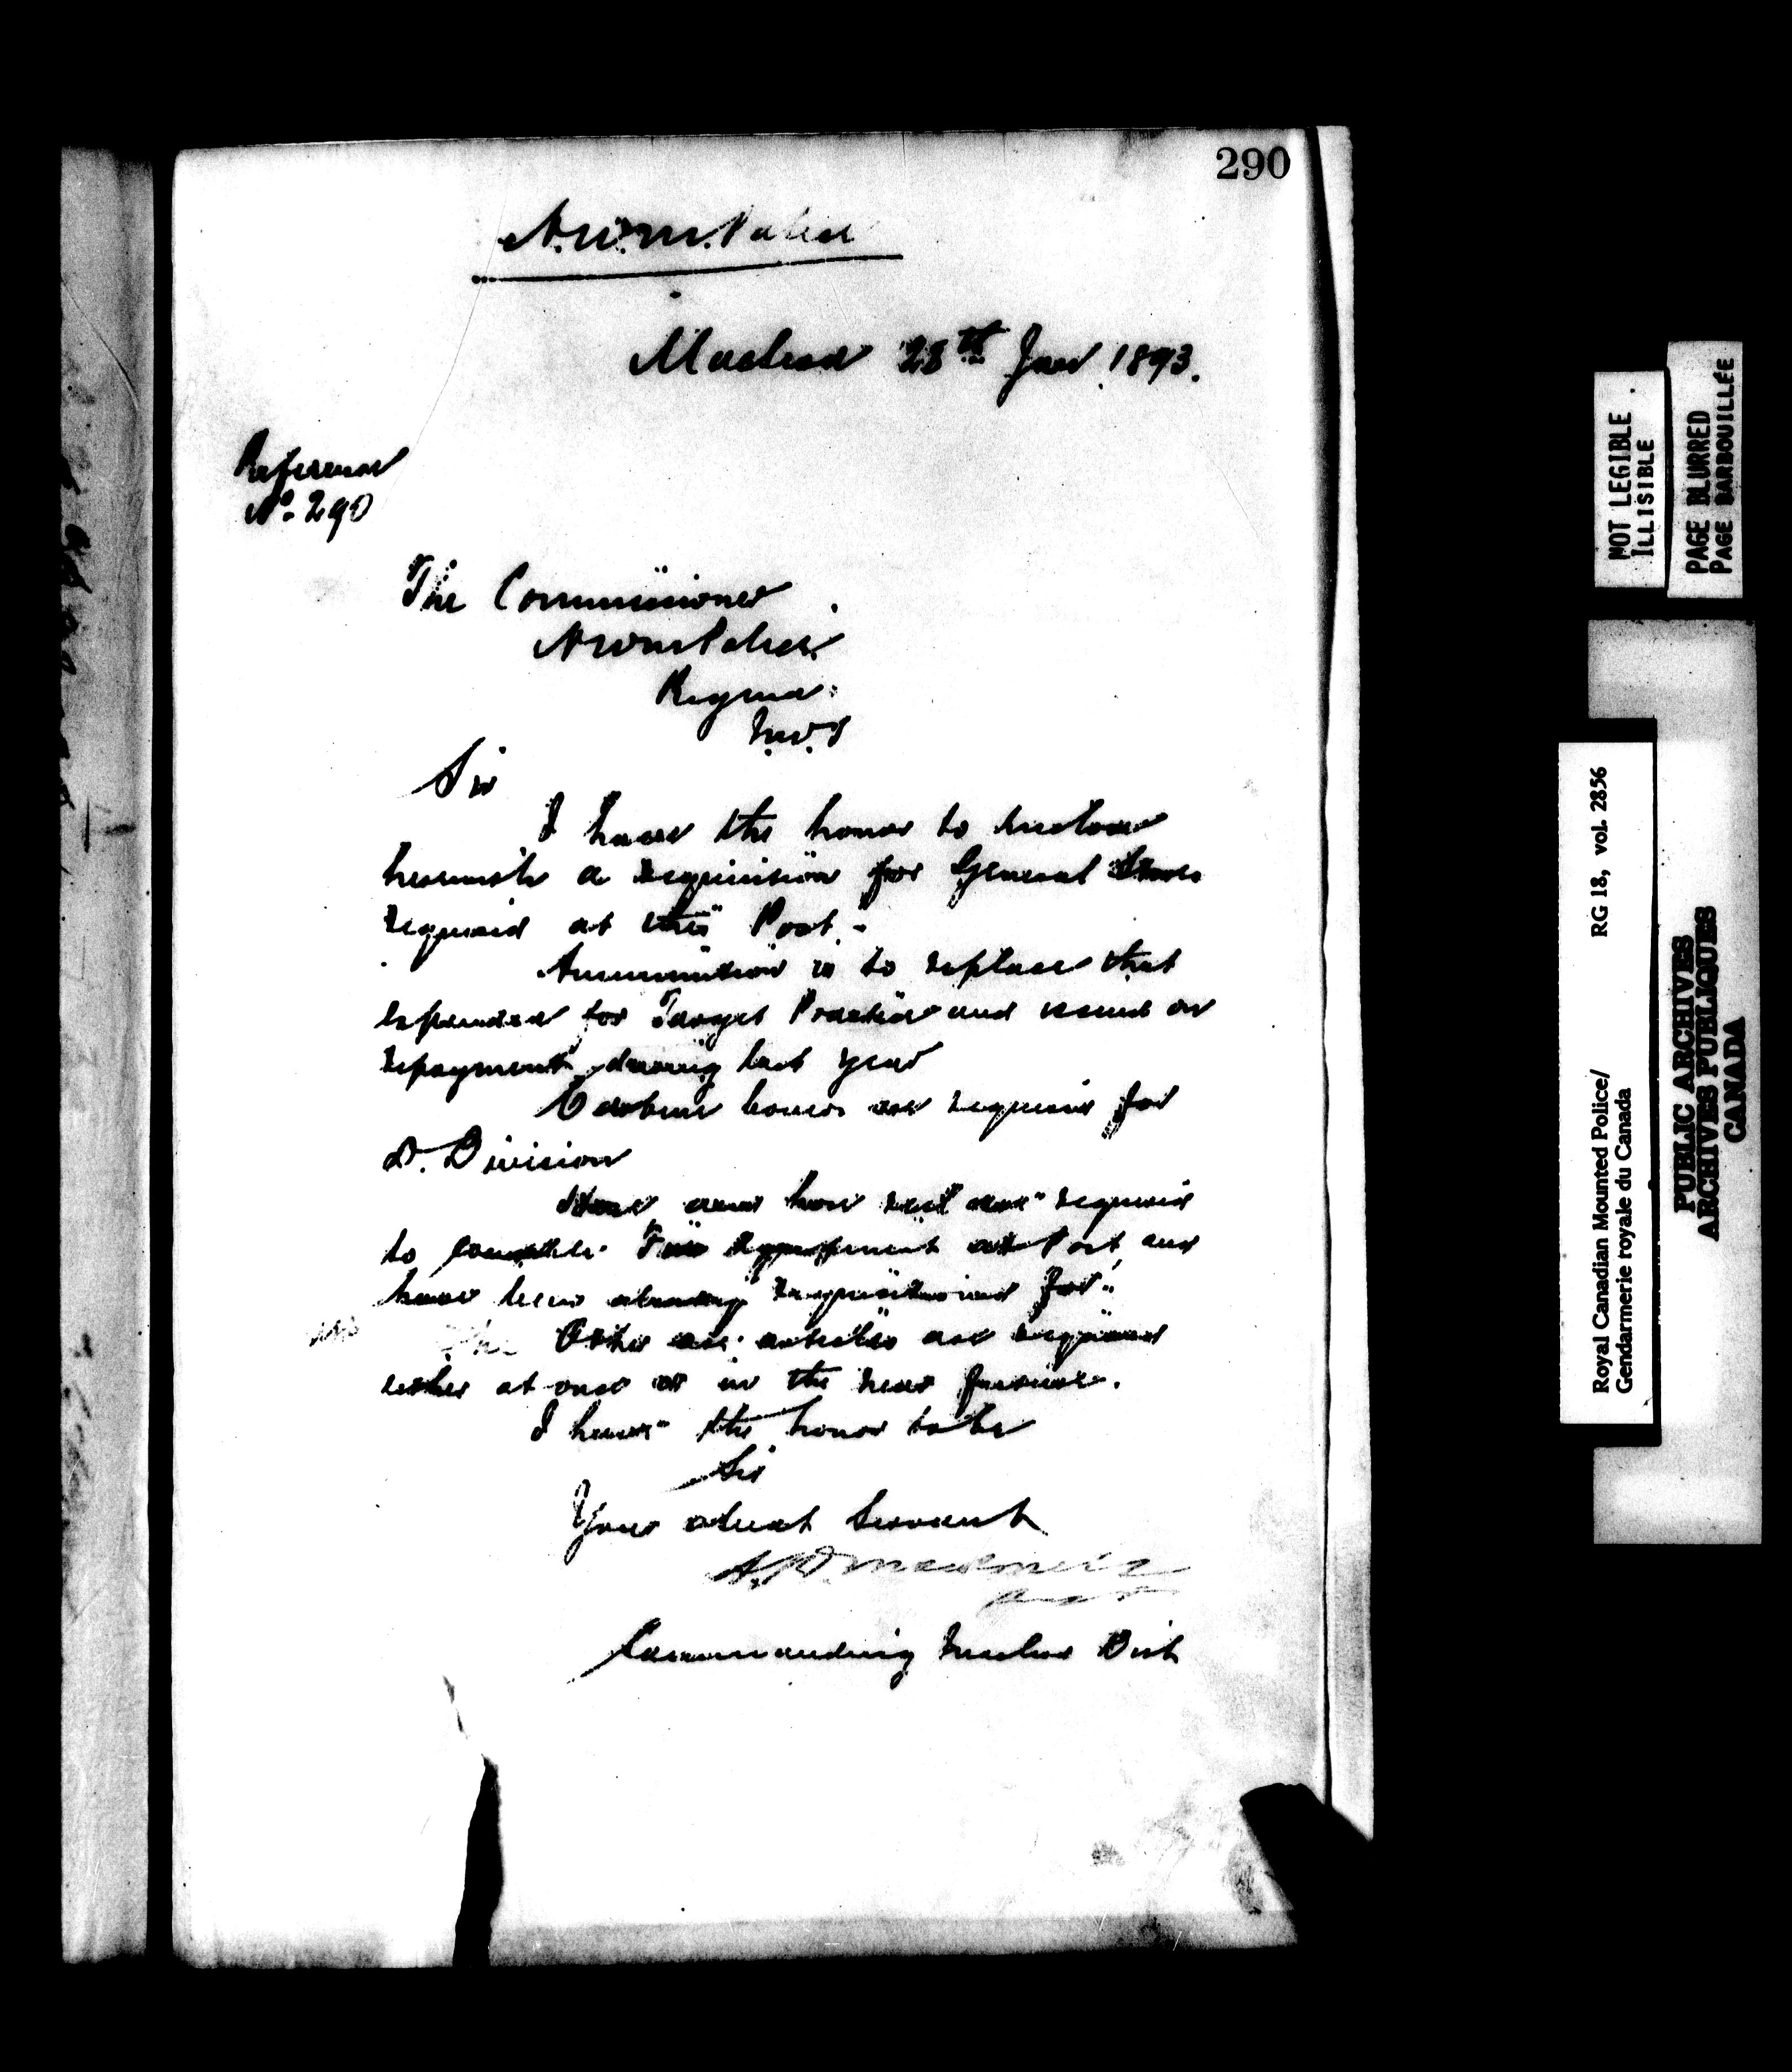 290
N.W.M. Police
Macleod 28th Jany 1893.
Reference
No. 290
The Commissioner
N W M Police
Regina
N.W.T
Sir
I have the honor to enclose
herewith a requisition for General Stores
required at this Post.-
Ammunition is to replace that
expended for Target Practice and issued on
repayment during last year
Carbine boxes are required for
D. Division
and hose required
to complete Fire at Post and
have been already requisitioned for.
The Other articles are required
either at once or in the near future.
I have the honor to be
Sir
Your obedt Servant
Commanding Macleod Dist
NOT LEGIBLE
ILLISIBLE
PAGE BLURRED
PAGE BARBOUILLÉE
Royal Canadian Mounted Police/ RG 18, vol. 2856
Gendarmerie royale du Canada
PUBLIC ARCHIVES
ARCHIVES PUBLIQUES
CANADA